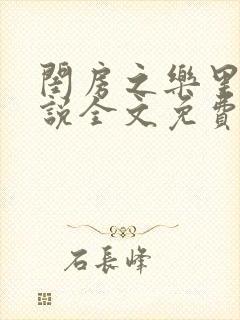 閨房之樂里
說全文免費
石長峰